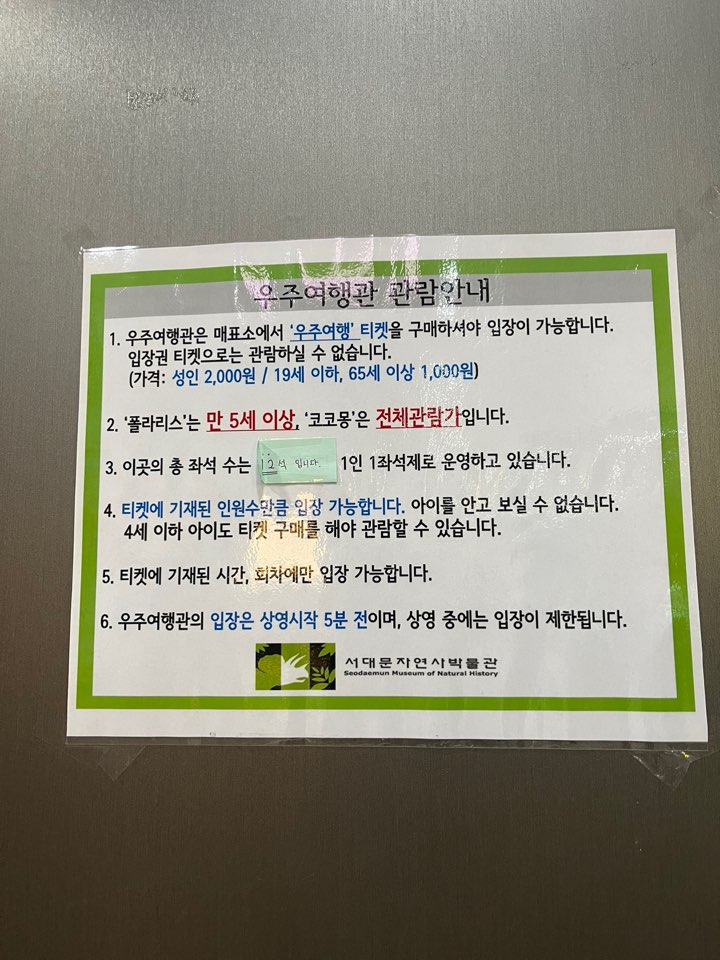 우주여행관 관람안내
1. 우주여행관은 매표소에서 '우주여행' 티켓을 구매하셔야 입장이 가능합니다.
입장권 티켓으로는 관람하실 수 없습니다.
(가격: 성인 2,000원 / 19세 이하, 65세 이상 1,000원)
2. '폴라리스'는 만 5세 이상, '코코몽'은 전체관람가입니다.
3. 이곳의 총 좌석 수는 12석 입니다. 1인 1좌석제로 운영하고 있습니다.
4. 티켓에 기재된 인원수만큼 입장 가능합니다. 아이를 안고 보실 수 없습니다.
4세 이하 아이도 티켓 구매를 해야 관람할 수 있습니다.
5. 티켓에 기재된 시간, 회차에만 입장 가능합니다.
6. 우주여행관의 입장은 상영시작 5분 전이며, 상영 중에는 입장이 제한됩니다.
서대문자연사박물관
Seodaemun Museum of Natural History